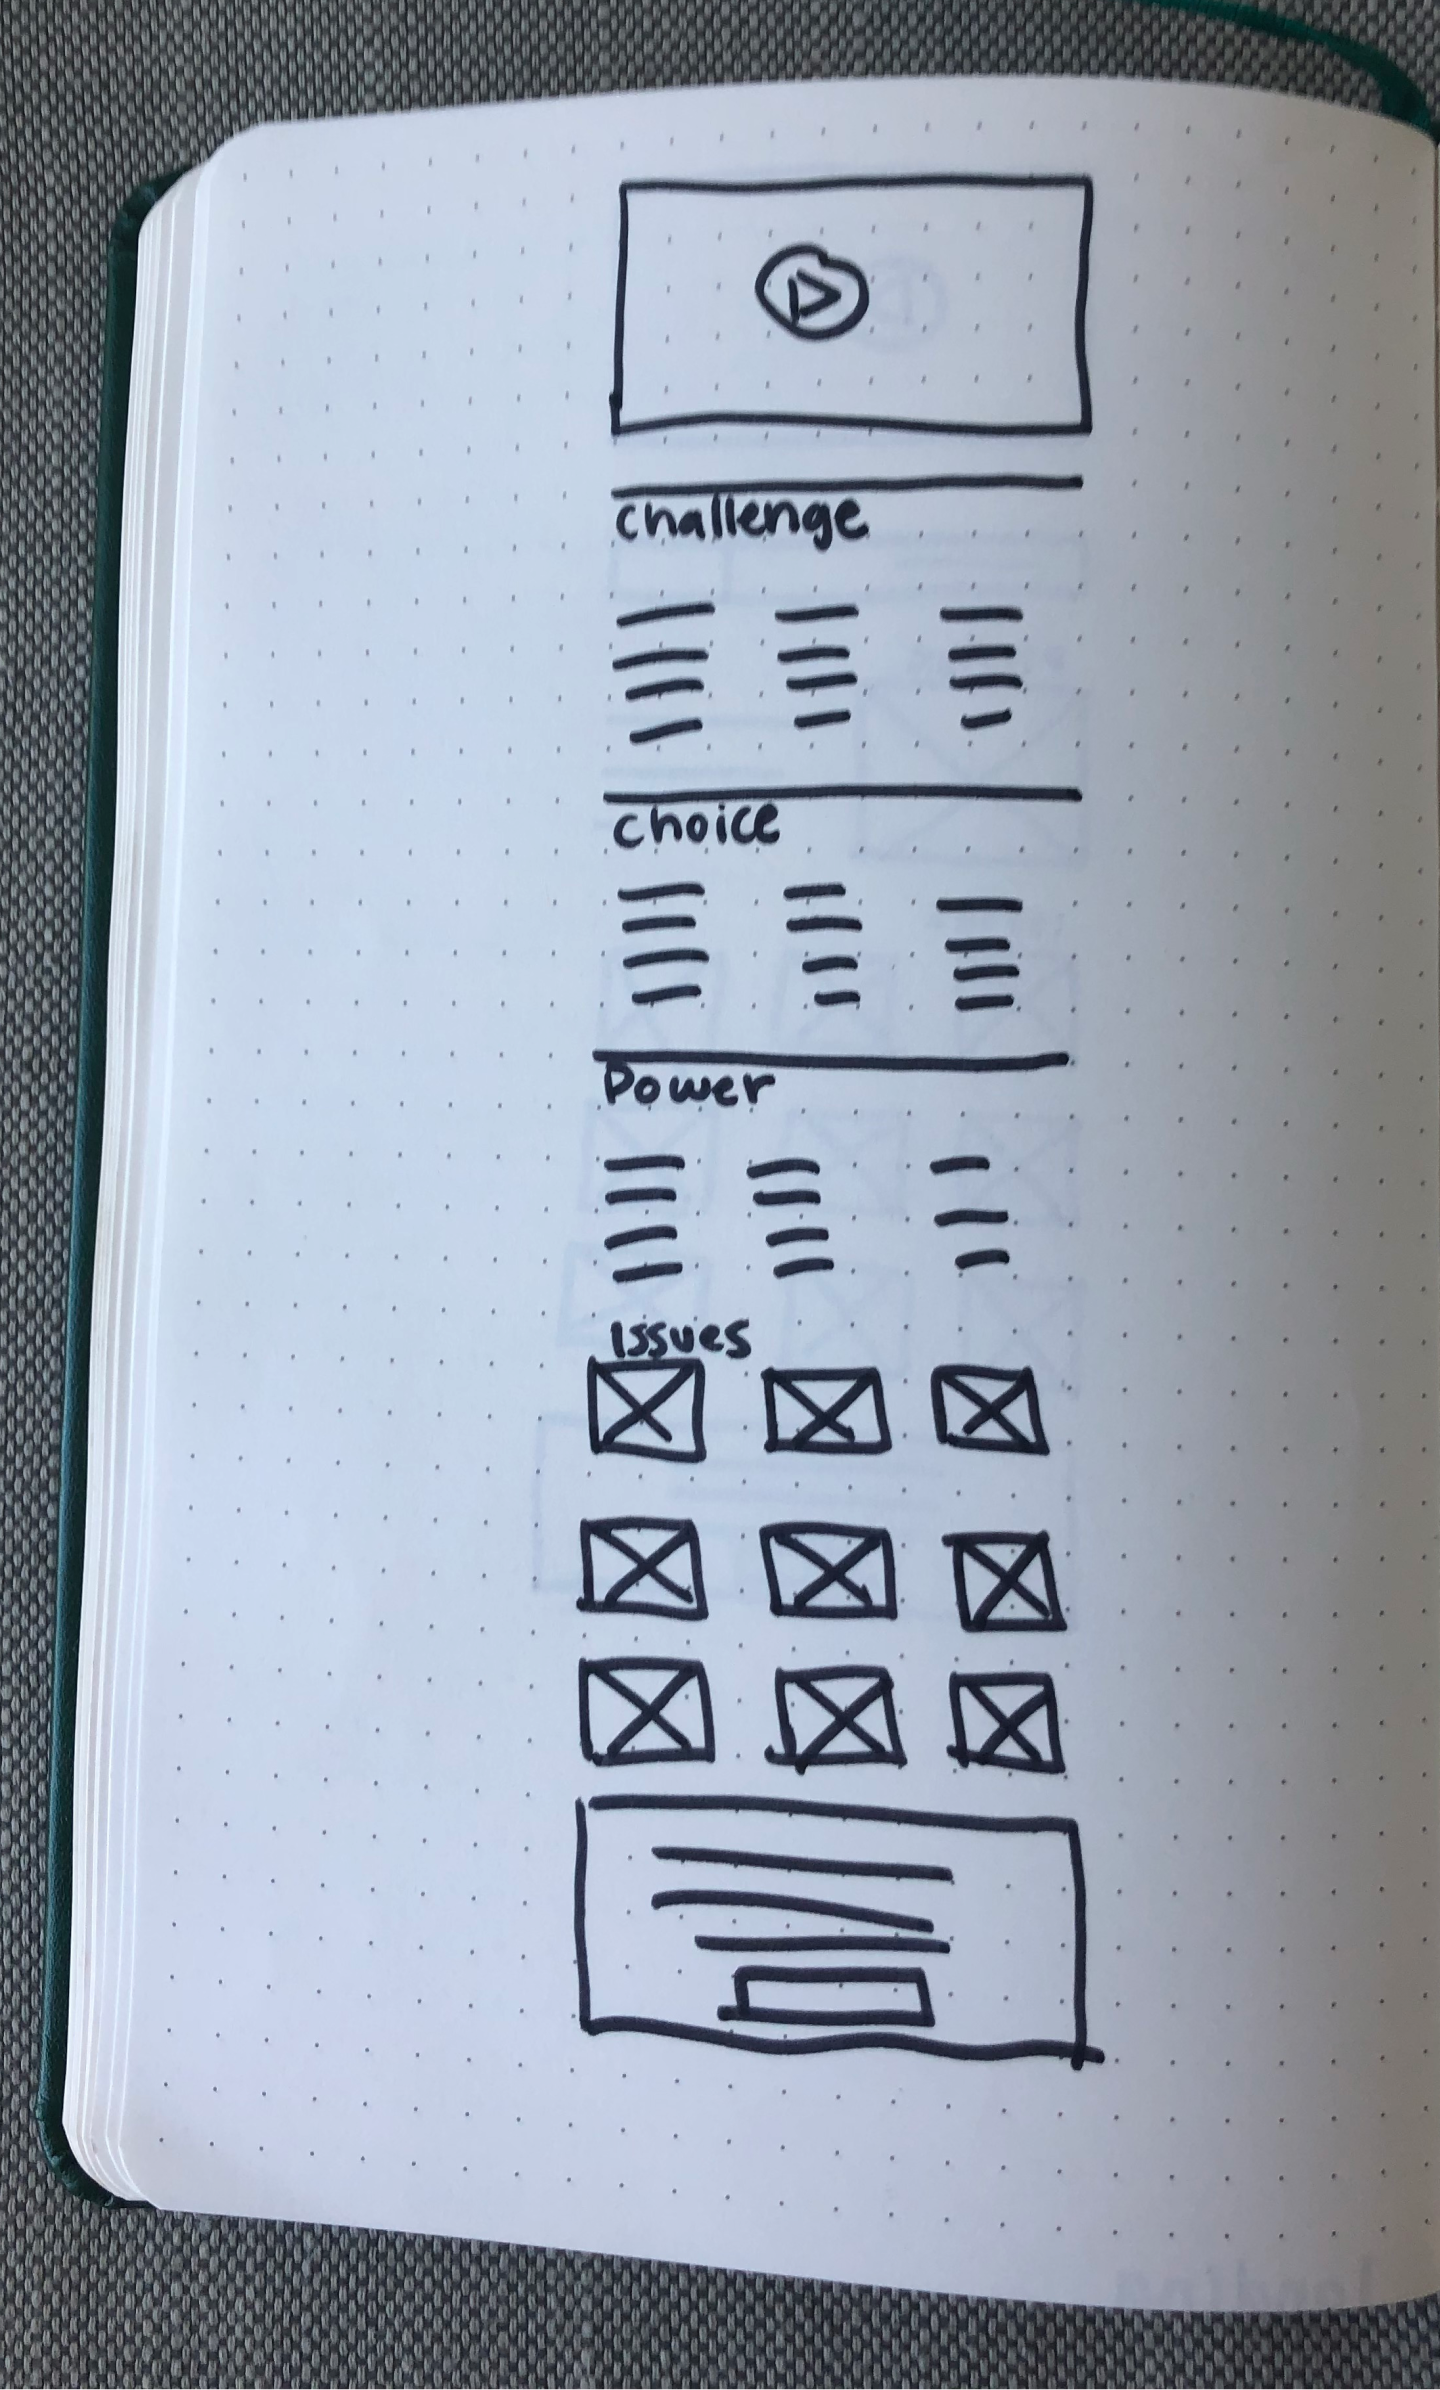 challenge
choice
Power
Issues